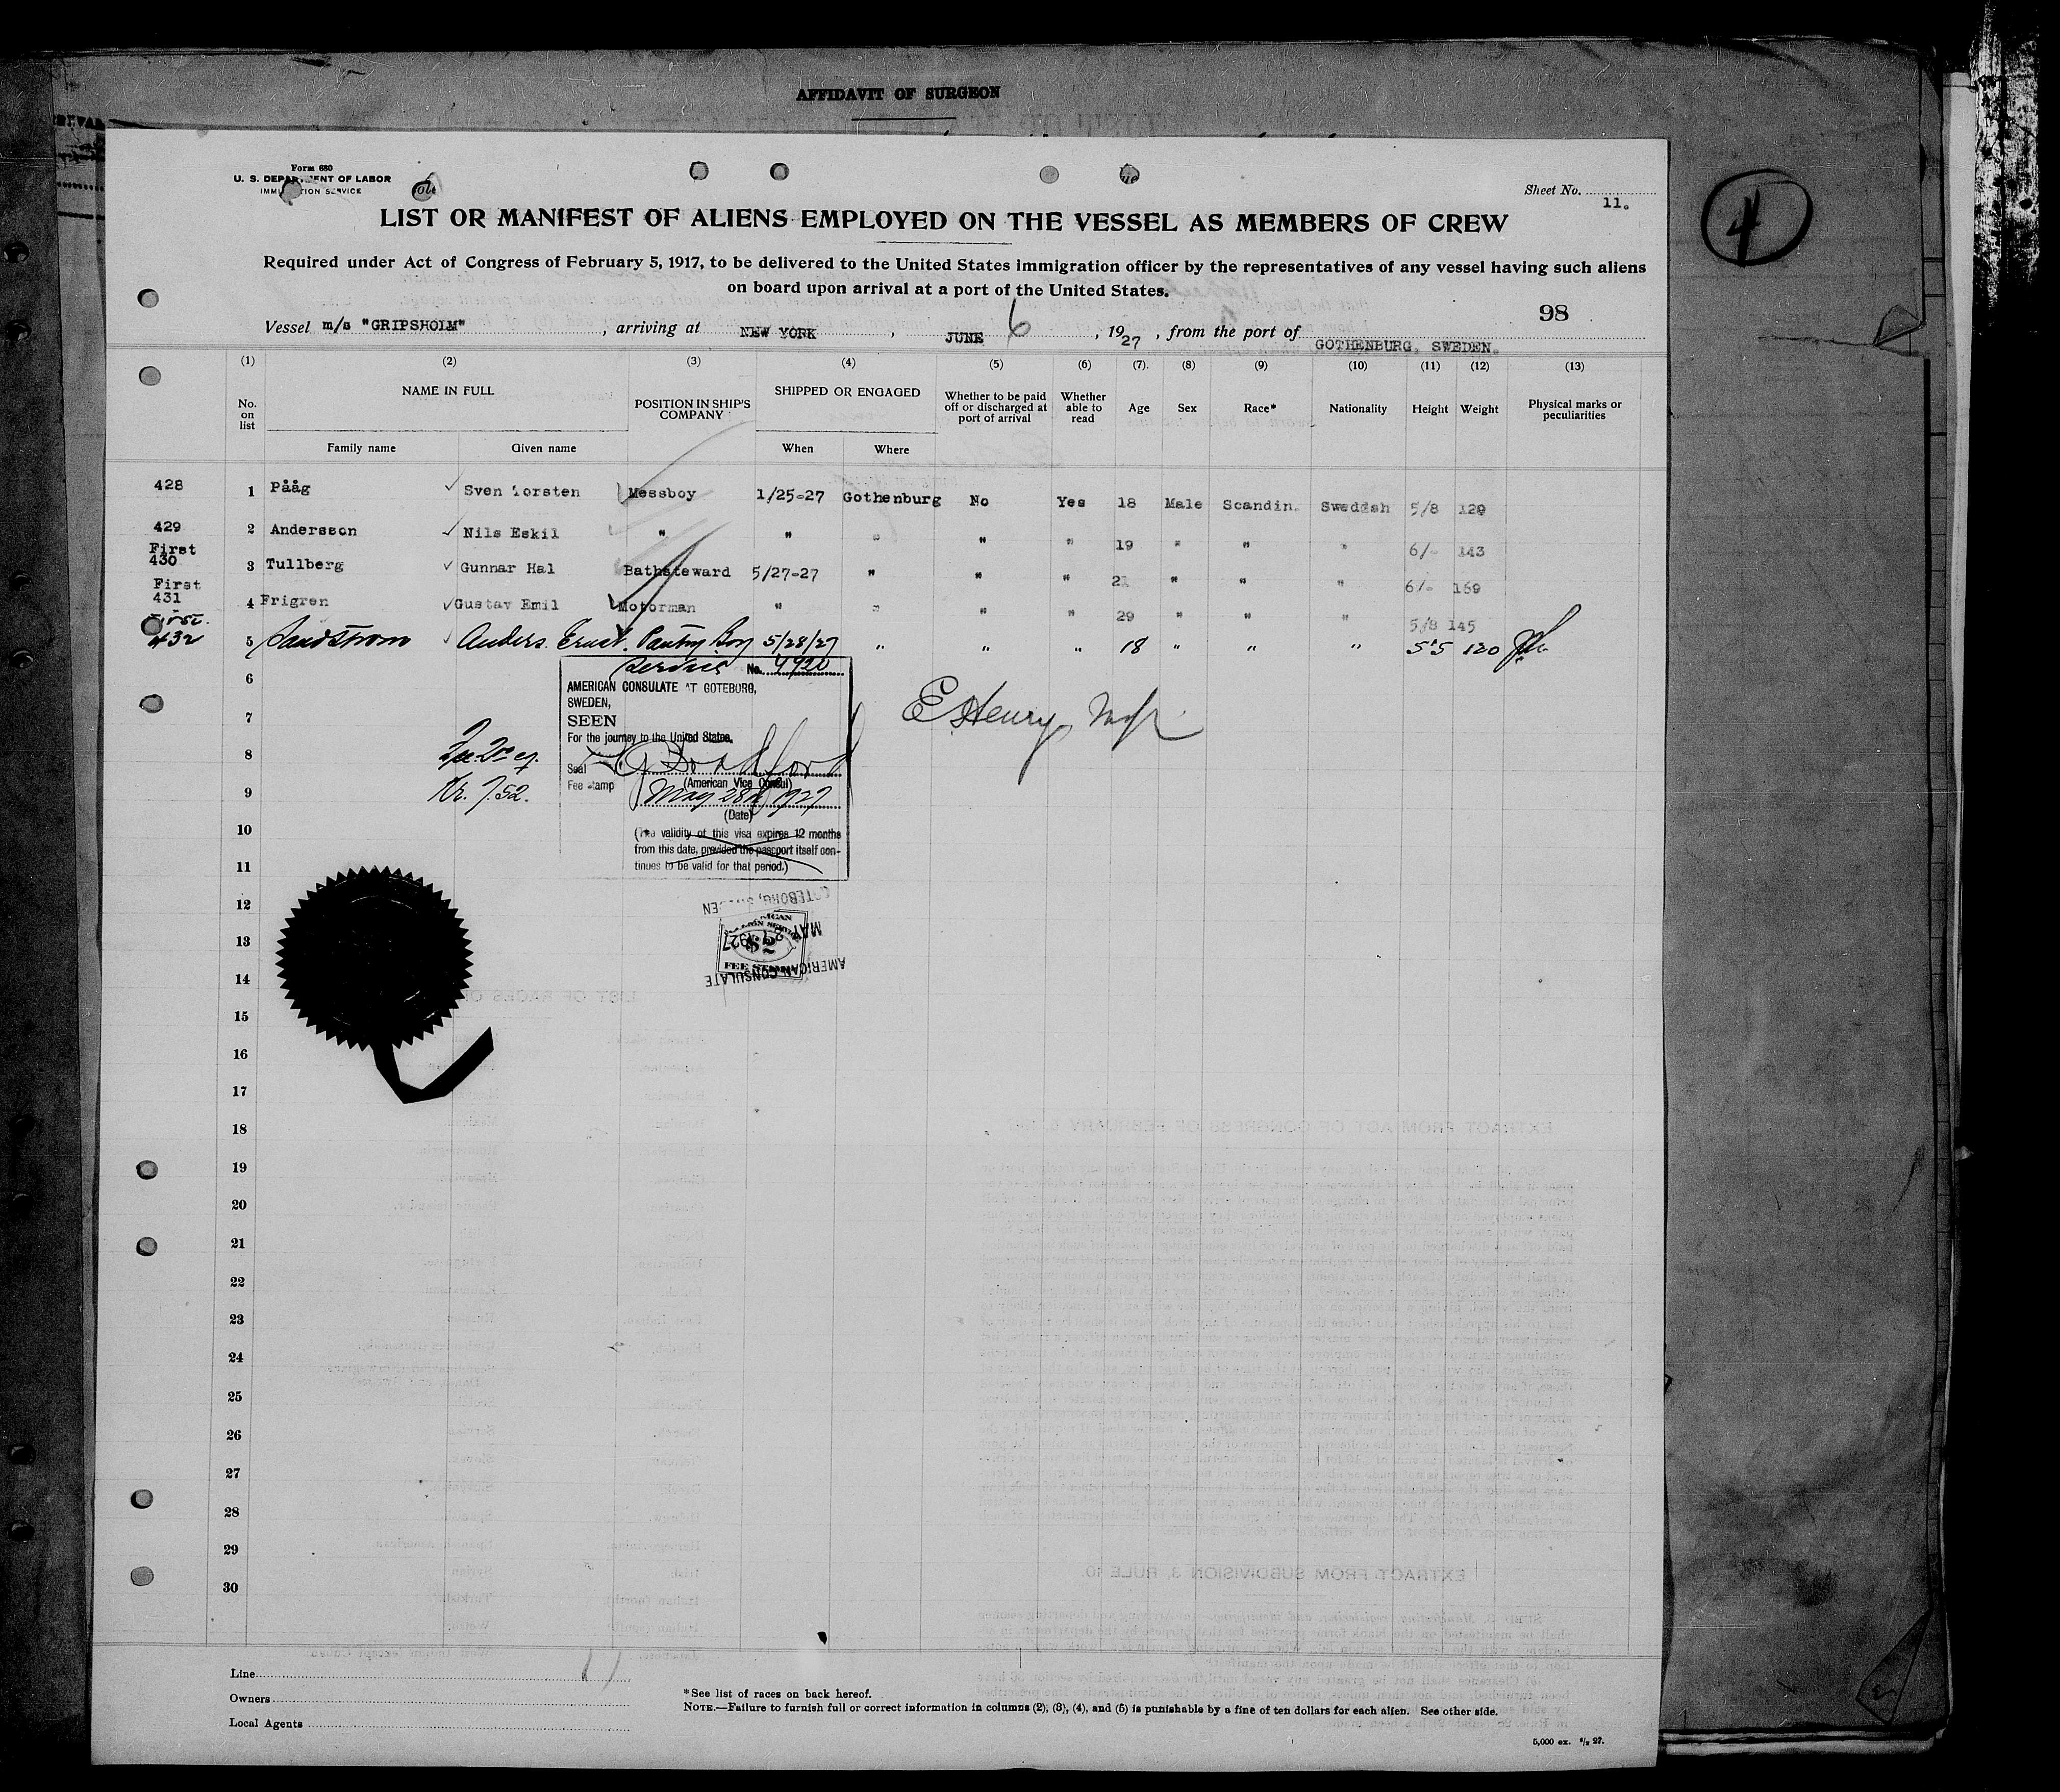 AFFIDAVIT OF SURGEON
4
Form 680
U. S. DEPARTMENT OF LABOR
IMMIGRATION SERVICE
Sheet No.
11.
LIST OR MANIFEST OF ALIENS EMPLOYED ON THE VESSEL AS MEMBERS OF CREW
Required under Act of Congress of February 5, 1917, to be delivered to the United States immigration officer by the representatives of any vessel having such aliens
on board upon arrival at a port of the United States.
98
Vessel m/s "GRIPSHOLM", arriving at NEW YORK, JUNE 6, 1927, from the port of GOTHENBURG, SWEDEN.
(1) (2) (3) (4) (5) (6) (7). (8) (9) (10) (11) (12) (13)
No. on list NAME IN FULL POSITION IN SHIP'S COMPANY SHIPPED OR ENGAGED Whether to be paid off or discharged at port of arrival Whether able to read Age Sex Race* Nationality Height Weight Physical marks or peculiarities
Family name Given name When Where
428 1 Pååg Sven Torsten Messboy 1/25-27 Gothenburg No Yes 18 Male Scandin. Sweddsh 5/8 129
429 2 Andersson Nils Eskil " " " " " 19 " " " 6/- 143
First
430 3 Tullberg Gunnar Hal Bathsteward 5/27-27 " " " 21 " " " 6/- 169
First
431 4 Frigren Gustav Emil Motorman " " " " 29 " " " 5/8 145
First.
432 5 Sandstrom Anders Ernst. Pantry Boy 5/28/27 " " " 18 " " " 5'5 120
6
service No. 4920
AMERICAN CONSULATE AT GOTEBORG,
SWEDEN,
7
SEEN
E Henry
For the journey to the United States.
8
Seal
(American Vice Consul)
Fee stamp
9
Kr. 7.52.
May 28th 1927
(Date)
10
(The validity of this visa expires 12 months
from this date, provided the passport itself con-
tinues to be valid for that period.)
11
12
GOTEBORG, SWEDEN
MAY 27 1927
$2
FEE STAMP
AMERICAN CONSULATE
13
14
15
16
17
18
19
20
21
22
23
24
25
26
27
28
29
30
Line
Owners
Local Agents
*See list of races on back hereof.
NOTE.—Failure to furnish full or correct information in columns (2), (3), (4), and (5) is punishable by a fine of ten dollars for each alien. See other side.